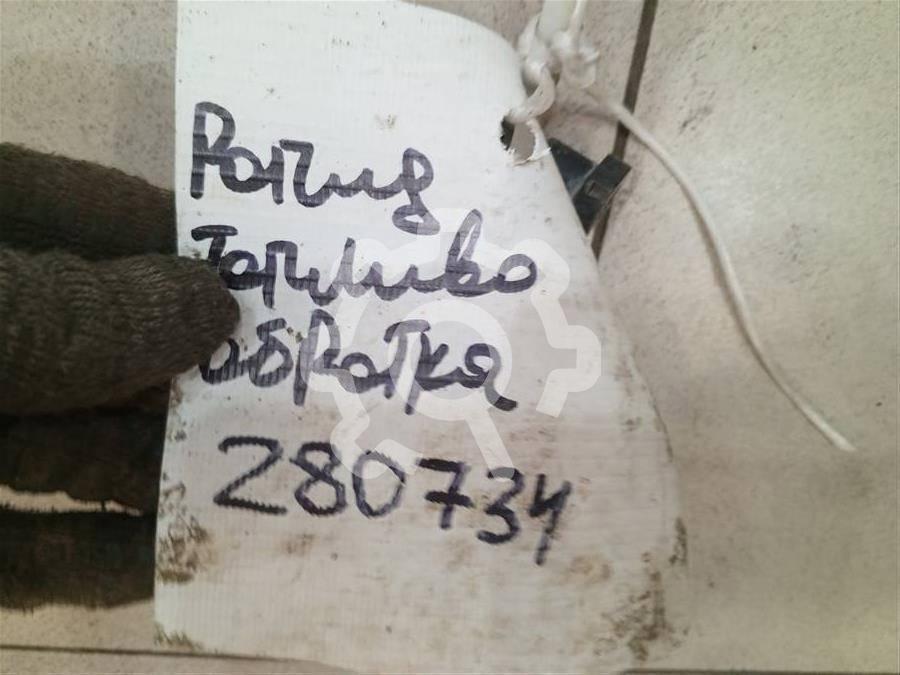 Рапид
Топливо
обратка
280734